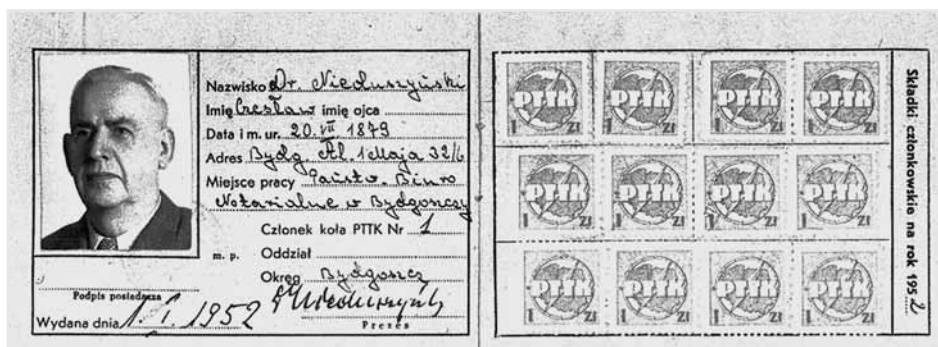 Nazwisko Dr. Nieduszyński
Imię Czesław imię ojca
Data i m. ur. 20. VII. 1879
Adres Bydg. Al. 1 Maja 32/6
Miejsce pracy Państw. Biuro
Notarialne w Bydgoszczy
Członek koła PTTK Nr 1
m. p. Oddział
Okręg Bydgoszcz
Podpis posiadacza
Prezes
Wydana dnia 1. I. 1952
PTTK PTTK PTTK PTTK
1 ZŁ 1 ZŁ 1 ZŁ 1 ZŁ
PTTK PTTK PTTK PTTK
1 ZŁ 1 ZŁ 1 ZŁ 1 ZŁ
PTTK PTTK PTTK PTTK
1 ZŁ 1 ZŁ 1 ZŁ 1 ZŁ
Składki członkowskie na rok 1952